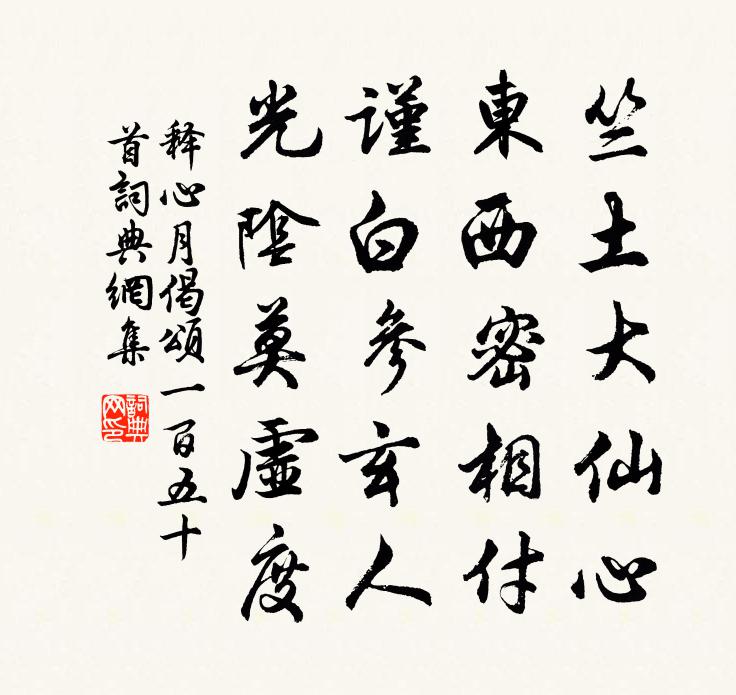 竺土大仙心
東西密相付
謹白參玄人
光陰莫虛度
释心月偈頌一百五十
首詞典網集
詞典
网印